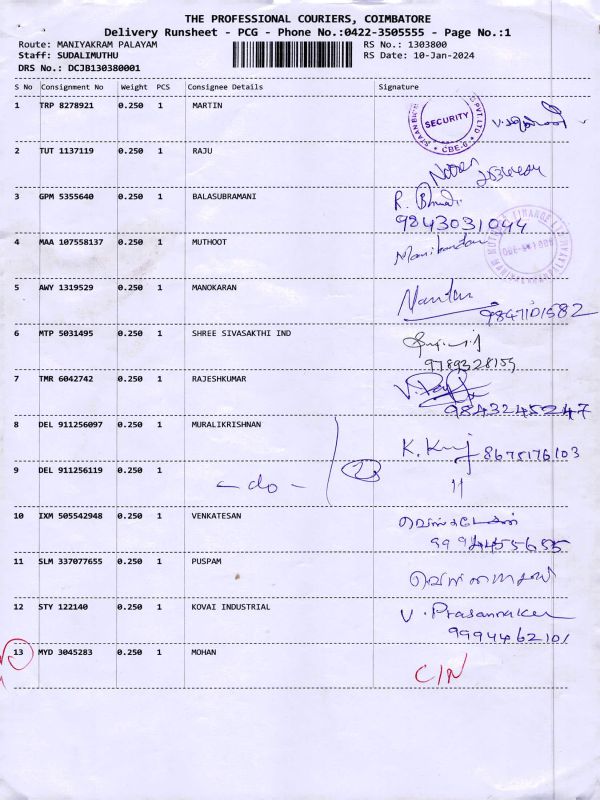 THE PROFESSIONAL COURIERS, COIMBATORE
Delivery Runsheet - PCG - Phone No.:0422-3505555 - Page No.:1
Route: MANIYAKRAM PALAYAM RS No.: 1303800
Staff: SUDALIMUTHU RS Date: 10-Jan-2024
DRS No.: DCJB130380001
S No Consignment No Weight PCS Consignee Details Signature
1 TRP 8278921 0.250 1 MARTIN
SECURITY
CBE-6
2 TUT 1137119 0.250 1 RAJU
3 GPM 5355640 0.250 1 BALASUBRAMANI
9843031044
4 MAA 107558137 0.250 1 MUTHOOT Manikandan
5 AWY 1319529 0.250 1 MANOKARAN
9847101582
6 MTP 5031495 0.250 1 SHREE SIVASAKTHI IND
9789328159
7 TMR 6042742 0.250 1 RAJESHKUMAR
9843245247
8 DEL 911256097 0.250 1 MURALIKRISHNAN 8675176103
9 DEL 911256119 0.250 1 - do - 2 "
10 IXM 505542948 0.250 1 VENKATESAN
11 SLM 337077655 0.250 1 PUSPAM
12 STY 122140 0.250 1 KOVAI INDUSTRIAL V. Prasannaker
9994462101
13 MYD 3045283 0.250 1 MOHAN C/N